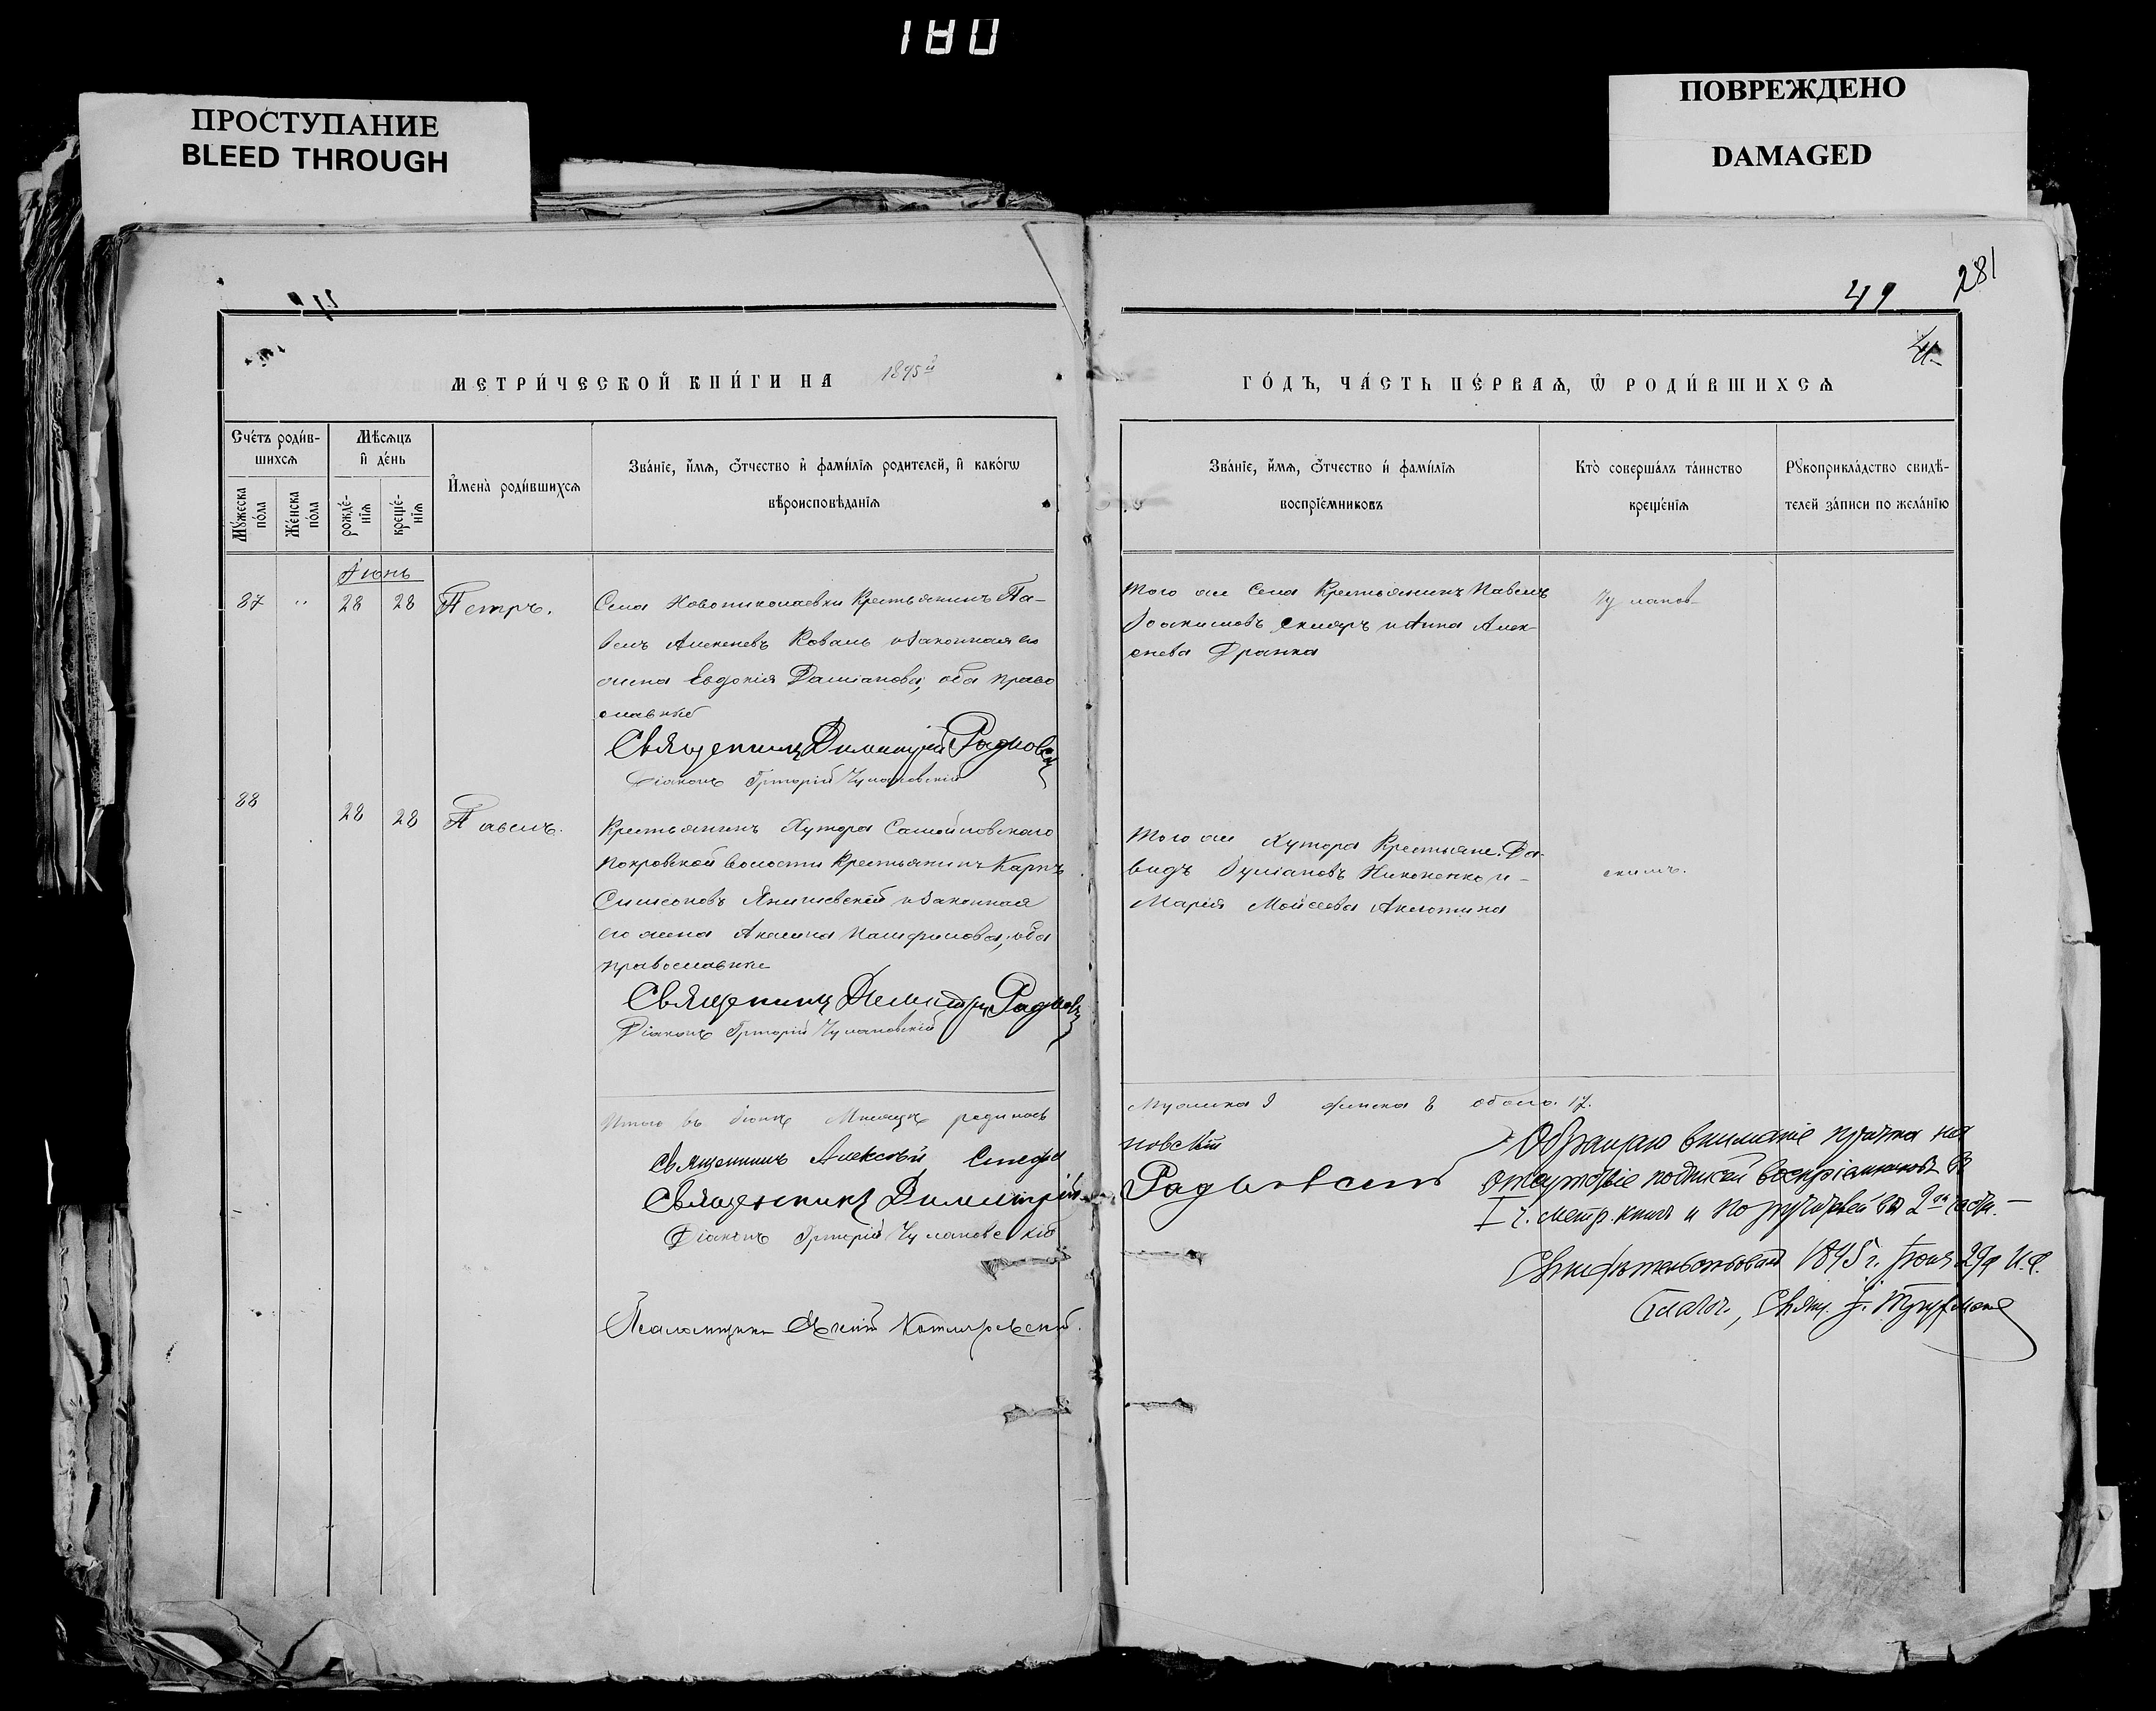 180
ПРОСТУПАНИЕ
BLEED THROUGH
ПОВРЕЖДЕНО
DAMAGED
281
49
МЕТРИ́ЧЕСКОЙ КНИ́ГИ НА 1895й
ГО́ДЪ, ЧА́СТЬ ПЕ́РВАѦ, Ѿ РОДИ́ВШИХСѦ
Сче́тъ роди́в-
шихсѧ
Мѣ́сѧцъ
и҆ де́нь
Мꙋ́жеска
по́ла
Же́нска
по́ла
рожде́-
нїѧ
креще́-
нїѧ
И҆мена̀ роди́вшихсѧ
Зва́нїе, и҆́мѧ, ѻ҆́тчество и҆ фамѝлїѧ родителей, и҆ како́гѡ
вѣроисповѣ́данїѧ
Зва́нїе, и҆́мѧ, ѻ҆́тчество и҆ фамѝлїѧ
воспрїе́мниковъ
Кто̀ соверша́лъ та́инство
креще́нїѧ
Рꙋкоприкла́дство свидѣ́-
телей за́писи по жела́нїю
Іюнь
87 " 28 28 Петръ.
Села Новониколаевки Крестьянинъ Па-
велъ Алексеевъ Коваль и законная его
жена Евдокія Даміанова, оба право
славные
Священникъ Димитрій Радковск
Діаконъ Григорій Чулановскій
Того же Села Крестьянинъ Павелъ
Іоакимовъ Скляръ и Анна Алек-
сеева Дранка
Чуланов-
88 28 28 Павелъ.
Крестьянинъ Хутора Самойловского
Покровской волости Крестьянинъ Карпъ
Симеоновъ Яничевскій и законная
его жена Акилина Памфилова, оба
православные
Священникъ Димитрій Радковск
Діаконъ Григорій Чулановскій
Того же Хутора Крестьяне: Да-
видъ Іуліановъ Никоненко и
Марія Моѵсеева
скимъ.
Итого въ Іюнѣ Мѣсяцѣ родилось
Мужска 9 женска 8 обоего. 17.
Священникъ Алексѣй Стефа
новскій
Священникъ Димитрій
Радковскій
Діаконъ Григорій Чулановскій
Псаломщикъ Котляревскій.
Обращаю вниманіе причта на
отсутствіе подписей воспріемниковъ въ
I ч. метр. книги и поручителей во 2ой части.
Свидѣтельствовалъ 1895 г. Іюня 29 д И. д.
Благоч., Свящ.